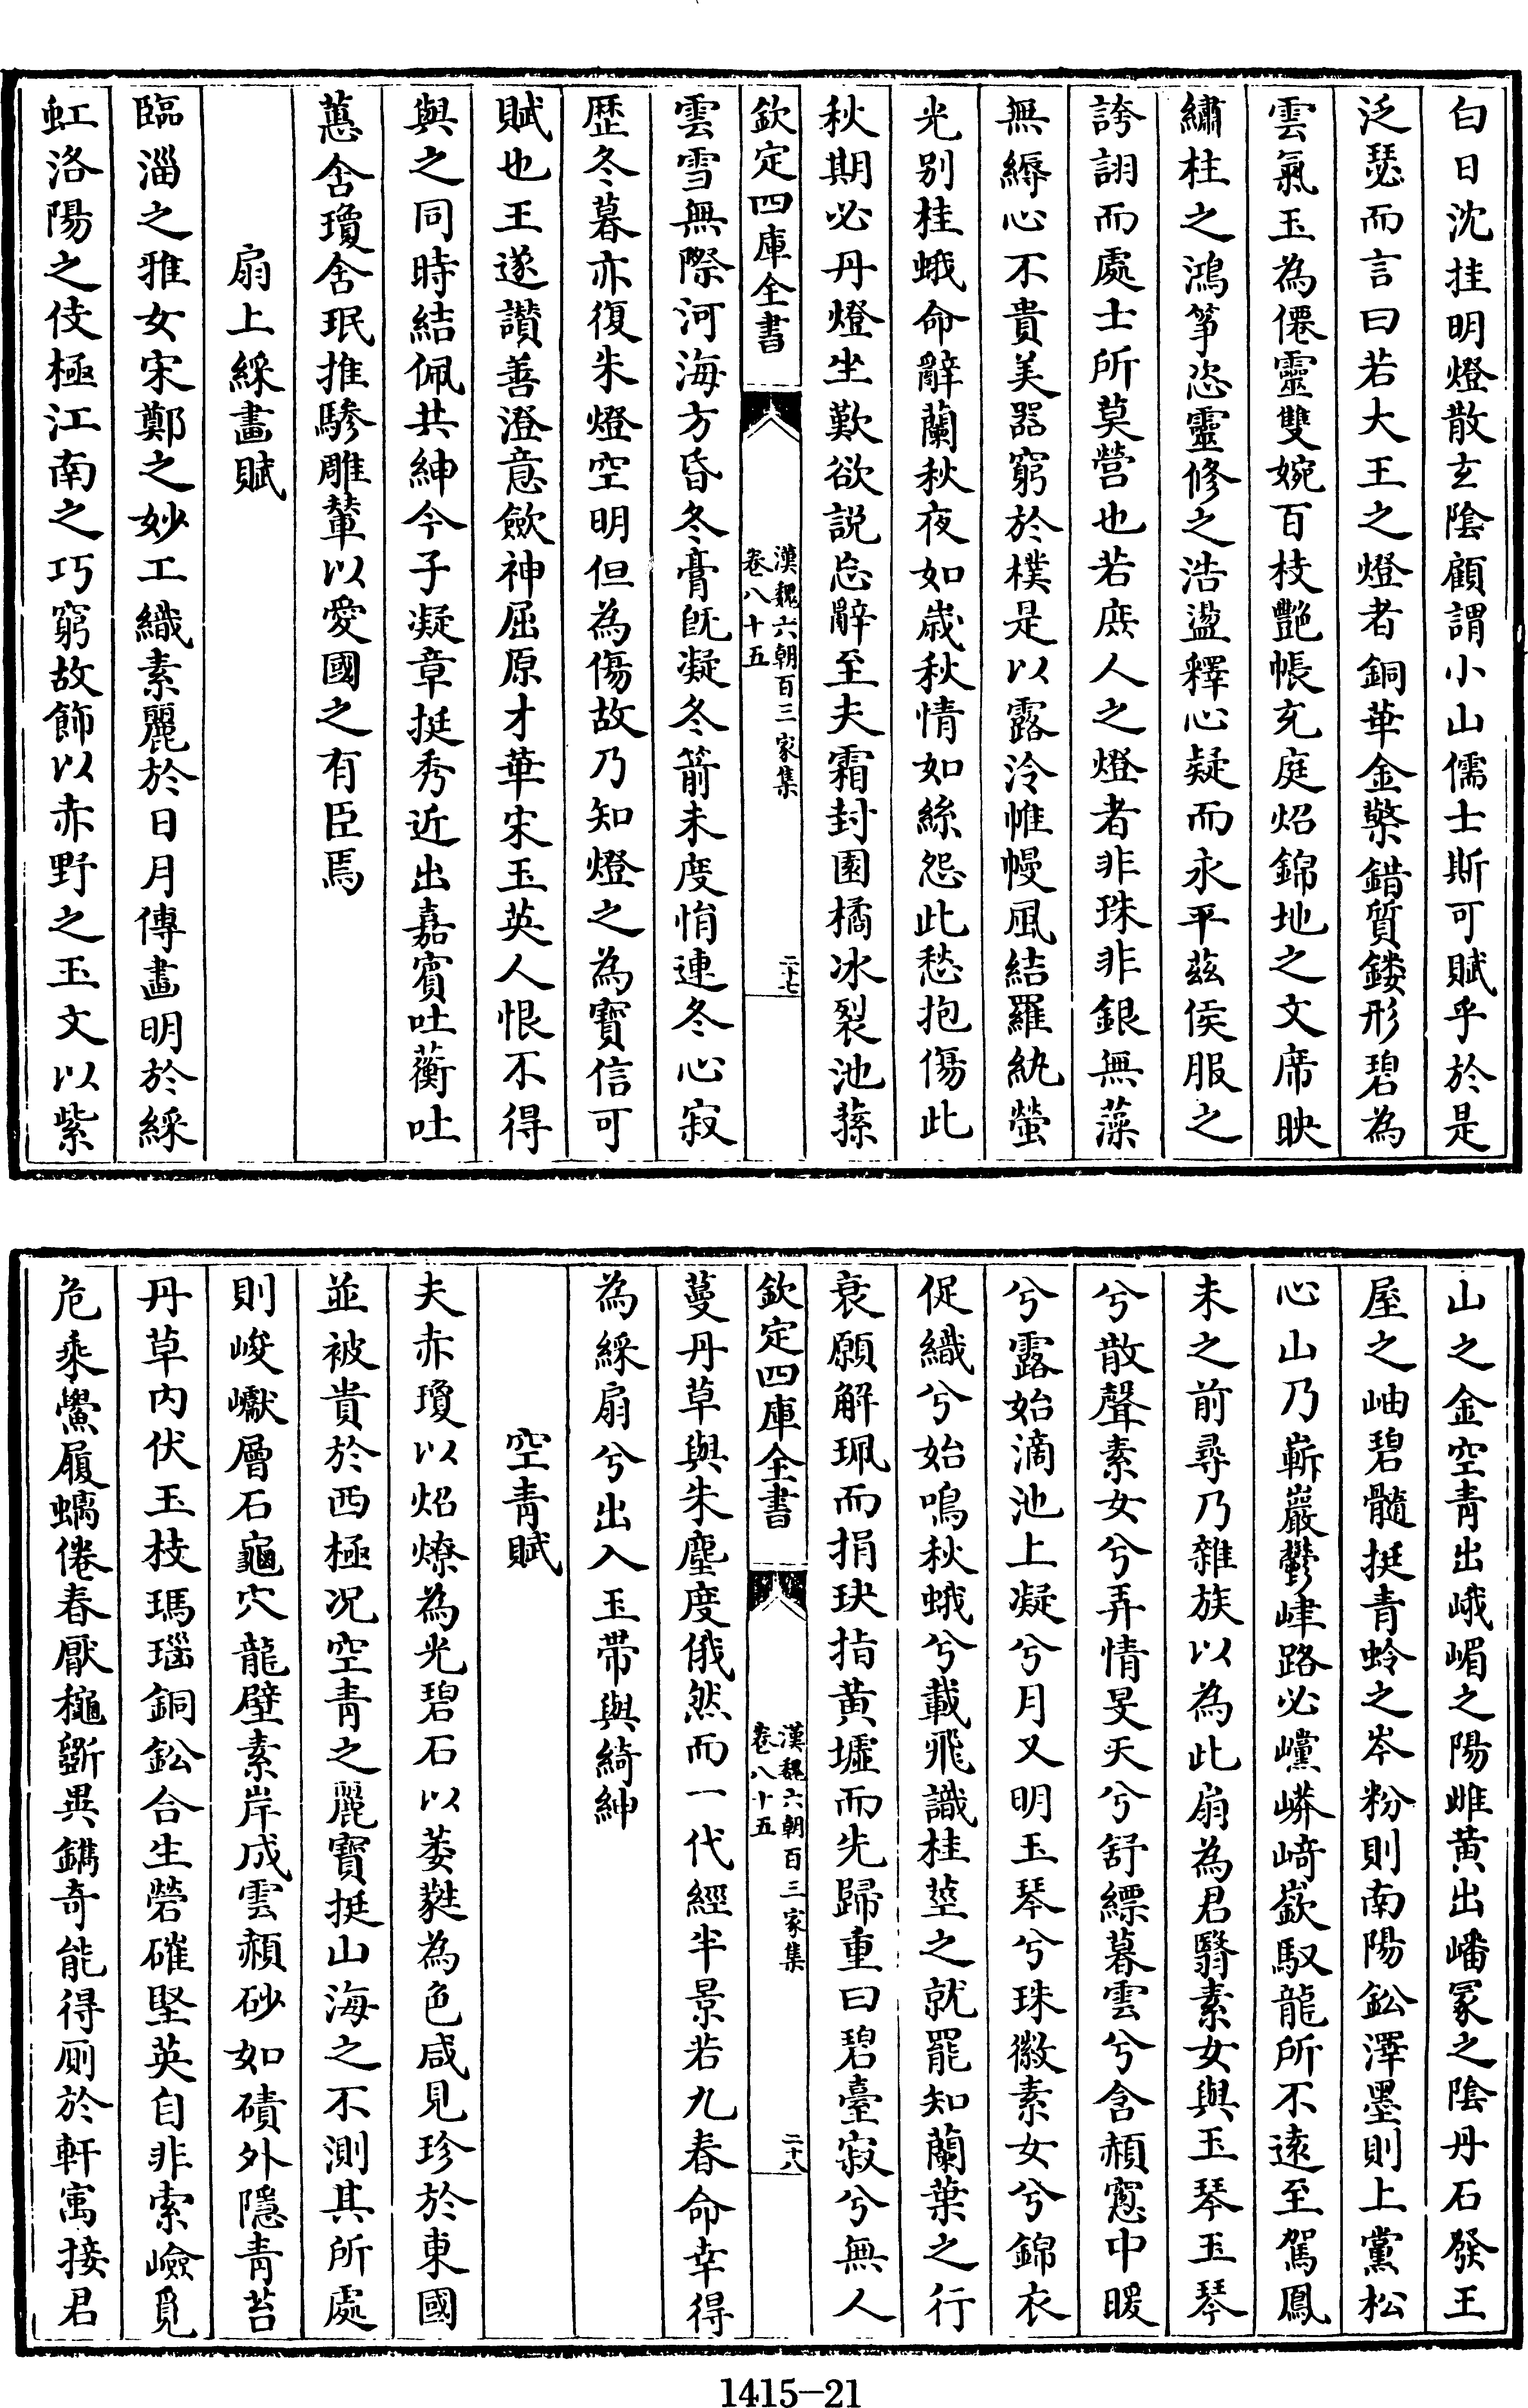 白日沈挂明燈散玄陰顧謂小山儒士斯可賦乎於是
泛瑟而言曰若大王之燈者銅華金檠錯質鏤形碧為
雲氣玉為僊靈雙婉百枝艷帳充庭炤錦地之文席映
繡柱之鴻箏恣靈修之浩盪釋心疑而永平茲侯服之
誇詡而處士所莫營也若庶人之燈者非珠非銀無藻
無縟心不貴美器窮於樸是以露泠帷幔風結羅紈螢
光别桂蛾命辭蘭秋夜如歲秋情如絲怨此愁抱傷此
秋期必丹燈坐歎欲說忘辭至夫霜封園橘冰裂池蓀
欽定四庫全書
漢魏六朝百三家集
卷八十五
二十七
雲雪無際河海方昏冬膏既凝冬箭未度悁連冬心寂
歴冬暮亦復朱燈空明但為傷故乃知燈之為寶信可
賦也王遂讚善澄意斂神屈原才華宋玉英人恨不得
與之同時結佩共紳今子凝章挺秀近出嘉賓吐蘅吐
蕙含瓊含珉推驂雕輦以愛國之有臣焉
扇上綵畫賦
臨淄之雅女宋鄭之妙工織素麗於日月傳畫明於綵
虹洛陽之伎極江南之巧窮故飾以赤野之玉文以紫
山之金空青出峨嵋之陽雌黄出嶓冢之陰丹石發王
屋之岫碧髓挺青蛉之岑粉則南陽鈆澤墨則上黨松
心山乃嶄巖鬱嵂路必㠉嵂﨑嶔馭龍所不遠至駕鳳
未之前尋乃雜族以為此扇為君翳素女與玉琴玉琴
兮散聲素女兮弄情旻天兮舒縹暮雲兮含赬窓中暖
兮露始滴池上凝兮月又明玉琴兮珠徽素女兮錦衣
促織兮始鳴秋蛾兮載飛識桂莖之就罷知蘭葉之行
衰願解珮而捐玦指黄墟而先歸重曰碧臺寂兮無人
欽定四庫全書
漢魏六朝百三家集
卷八十五
二十八
蔓丹草與朱塵度俄然而一代經半景若九春命幸得
為綵扇兮出入玉帶與綺紳
空青賦
夫赤瓊以炤燎為光碧石以萎蕤為色咸見珍於東國
並被貴於西極况空青之麗寶挺山海之不測其所處
則峻巘層石龜穴龍壁素岸成雲赬砂如磧外隱青苔
丹草内伏玉枝瑪瑙銅鈆合生礐確堅英自非索嶮覓
危乘鱟履螭倦春厭穐斵異鐫奇能得厠於軒寓接君